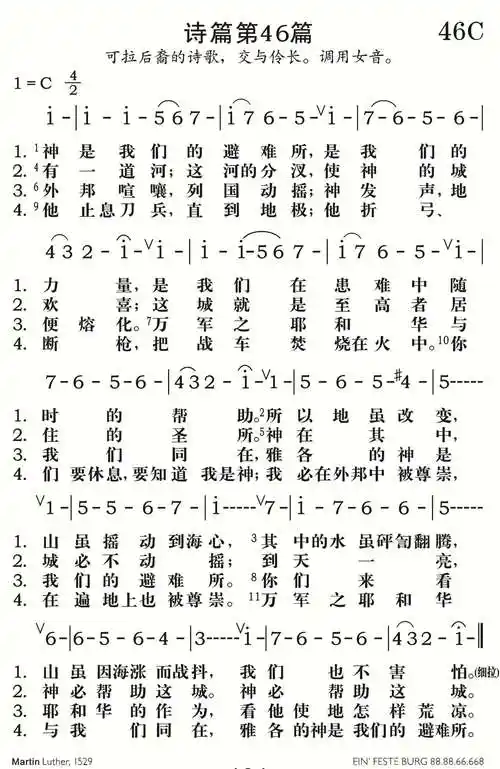 诗篇第46篇
46C
可拉后裔的诗歌，交与伶长。调用女音。
1=C 4/2
i-|i-i-567-|i765-ⱽi-|7-6-5-6-|
1. ¹神是我们的避难所，是我们的
2. ⁴有一道河；这河的分汊，使神的城
3. ⁶外邦喧嚷，列国动摇；神发声，地
4. ⁹他止息刀兵，直到地极；他折弓、
432-i-ⱽi-|i-i-567-|i765-ⱽi-|
1. 力量，是我们在患难中随
2. 欢喜；这城就是至高者居
3. 便熔化。⁷万军之耶和华与
4. 断枪，把战车焚烧在火中。¹⁰你
7-6-5-6-|432-i-ⱽ1-|5-6-5-#4-|5-----
1. 时的帮助。²所以地虽改变，
2. 住的圣所。⁵神在其中，
3. 我们同在，雅各的神是
4. 们要休息，要知道我是神；我必在外邦中被尊崇，
ⱽ1-|5-5-6-7-|i-----ⱽ7-|i-7-6-6-|5-----
1. 山虽摇动到海心，³其中的水虽砰訇翻腾，
2. 城必不动摇；到天一亮，
3. 我们的避难所。⁸你们来看
4. 在遍地上也被尊崇。¹¹万军之耶和华
ⱽ6-|6-5-6-4-|3-----ⱽi-|7-6-5-6-|432-i-‖
1. 山虽因海涨而战抖，我们也不害怕。(细拉)
2. 神必帮助这城。神必帮助这城。
3. 耶和华的作为，看他使地怎样荒凉。
4. 与我们同在，雅各的神是我们的避难所。
Martin Luther, 1529
EIN' FESTE BURG 88.88.66.668